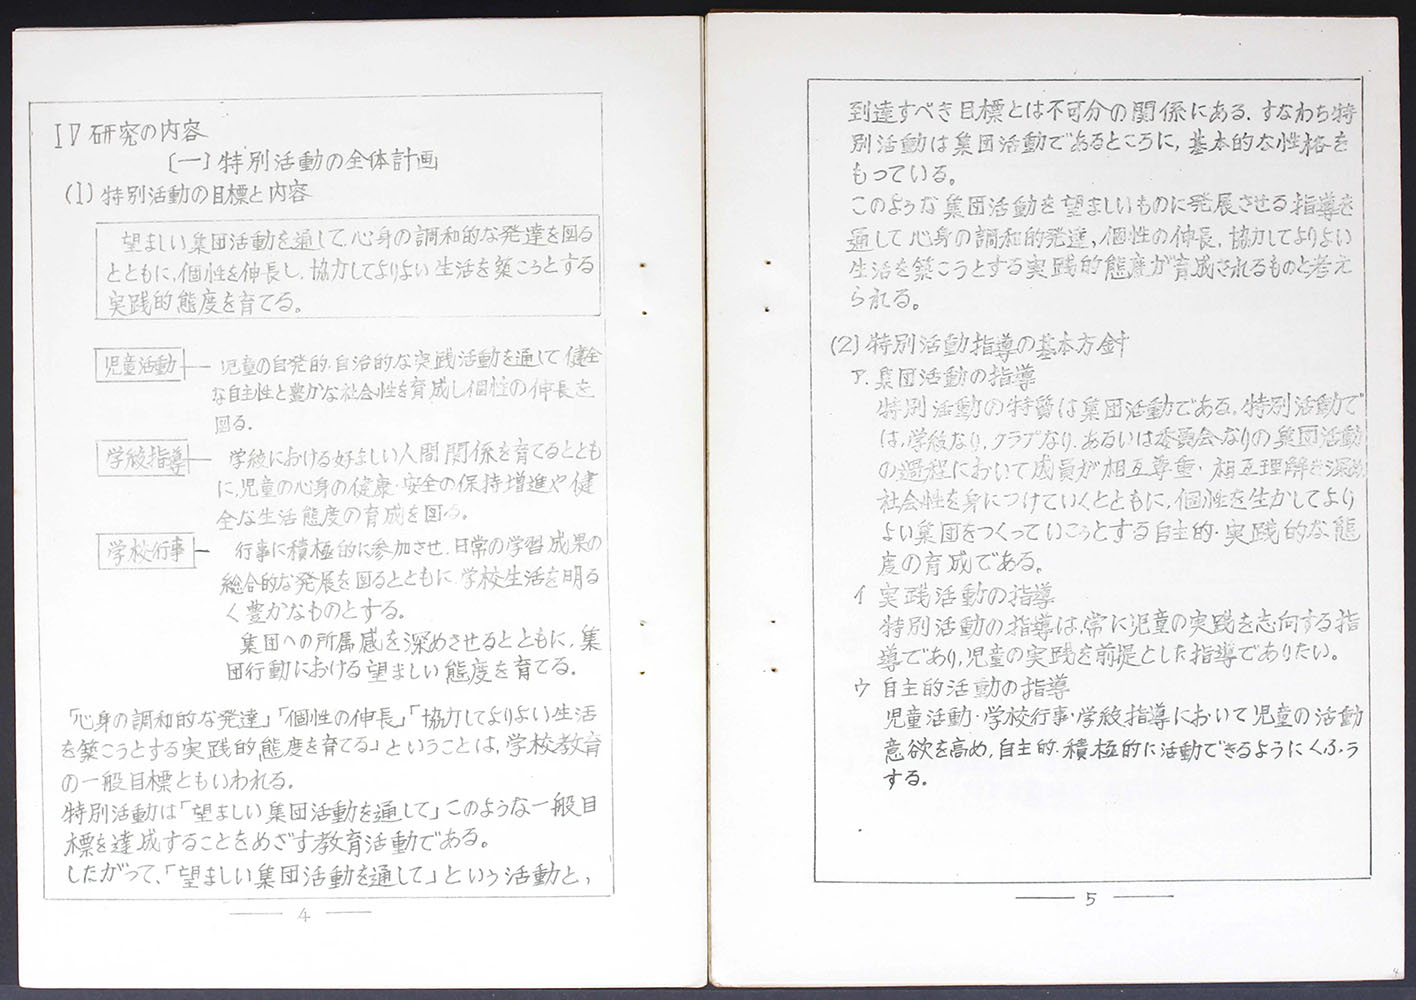 IV 研究の内容
〔一〕特別活動の全体計画
(1) 特別活動の目標と内容
望ましい集団活動を通して、心身の調和的な発達を図る
とともに、個性を伸長し、協力してよりよい生活を築こうとする
実践的態度を育てる。
児童活動 — 児童の自発的、自治的な実践活動を通して健全
な自主性と豊かな社会性を育成し個性の伸長を
図る。
学級指導 — 学級における好ましい人間関係を育てるととも
に、児童の心身の健康・安全の保持増進や健
全な生活態度の育成を図る。
学校行事 — 行事に積極的に参加させ、日常の学習成果の
総合的な発展を図るとともに、学校生活を明る
く豊かなものとする。
集団への所属感を深めさせるとともに、集
団行動における望ましい態度を育てる。
「心身の調和的な発達」「個性の伸長」「協力してよりよい生活
を築こうとする実践的態度を育てる」ということは、学校教育
の一般目標ともいわれる。
特別活動は「望ましい集団活動を通して」このような一般目
標を達成することをめざす教育活動である。
したがって、「望ましい集団活動を通して」という活動と、
4
到達すべき目標とは不可分の関係にある。すなわち特
別活動は集団活動であるところに、基本的な性格を
もっている。
このような集団活動を望ましいものに発展させる指導を
通して心身の調和的発達、個性の伸長、協力してよりよい
生活を築こうとする実践的態度が育成されるものと考え
られる。
(2) 特別活動指導の基本方針
ア. 集団活動の指導
特別活動の特質は集団活動である。特別活動で
は、学級なり、クラブなり、あるいは委員会なりの集団活動
の過程において成員が相互尊重・相互理解を深め
社会性を身につけていくとともに、個性を生かしてより
よい集団をつくっていこうとする自主的・実践的な態
度の育成である。
イ 実践活動の指導
特別活動の指導は、常に児童の実践を志向する指
導であり、児童の実践を前提とした指導でありたい。
ウ 自主的活動の指導
児童活動・学校行事・学級指導において児童の活動
意欲を高め、自主的・積極的に活動できるようにくふう
する。
5